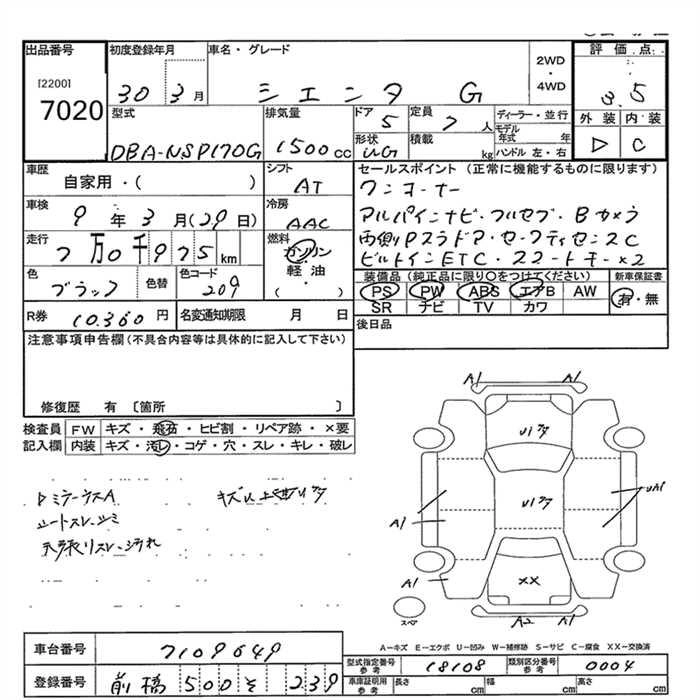 出品番号
[2200]
7020
初度登録年月
30 3月
車名・グレード
シエンタ G
2WD
・
4WD
評価点
3.5
外装 内装
D C
型式
DBA-NSP170G
排気量
1500cc
ドア
5
形状
定員
7人
積載
kg
ディーラー・並行
モデル年式 年
ハンドル 左・右
車歴
自家用・( )
シフト
AT
車検
9年3月(29日)
冷房
AAC
走行
7万0千975km
燃料
ガソリン
・
軽油
・
( )
色
ブラック
色替
色コード
209
R券 10.360円
名変通知期限 月 日
セールスポイント(正常に機能するものに限ります)
ワンオーナー
アルパインナビ・フルセグ・Bカメラ
両側Pスラドア・セーフティセンスC
ビルトインETC・スマートキー×2
装備品(純正品に限り○をつけてください)
PS PW ABS エアB AW
SR ナビ TV カワ
新車保証書
有・無
後日品
注意事項申告欄(不具合内容等は具体的に記入して下さい)
修復歴 有 〔箇所 〕
検査員記入欄
FW キズ・飛石・ヒビ割・リペア跡・×要
内装 キズ・汚レ・コゲ・穴・スレ・キレ・破レ
シートスレ・シミ
天張リスレ・汚れ
A1 A1
U1
U1
A1
UA1
A1
XX
A2 A1
スペア
A-キズ E-エクボ U-凹み W-補修跡 S-サビ C-腐食 XX-交換済
車台番号 7109649
登録番号 前橋 500 そ 239
型式指定番号 参考 18108
類別区分番号 参考 0004
車庫証明用 参考 長さ cm 幅 cm 高さ cm